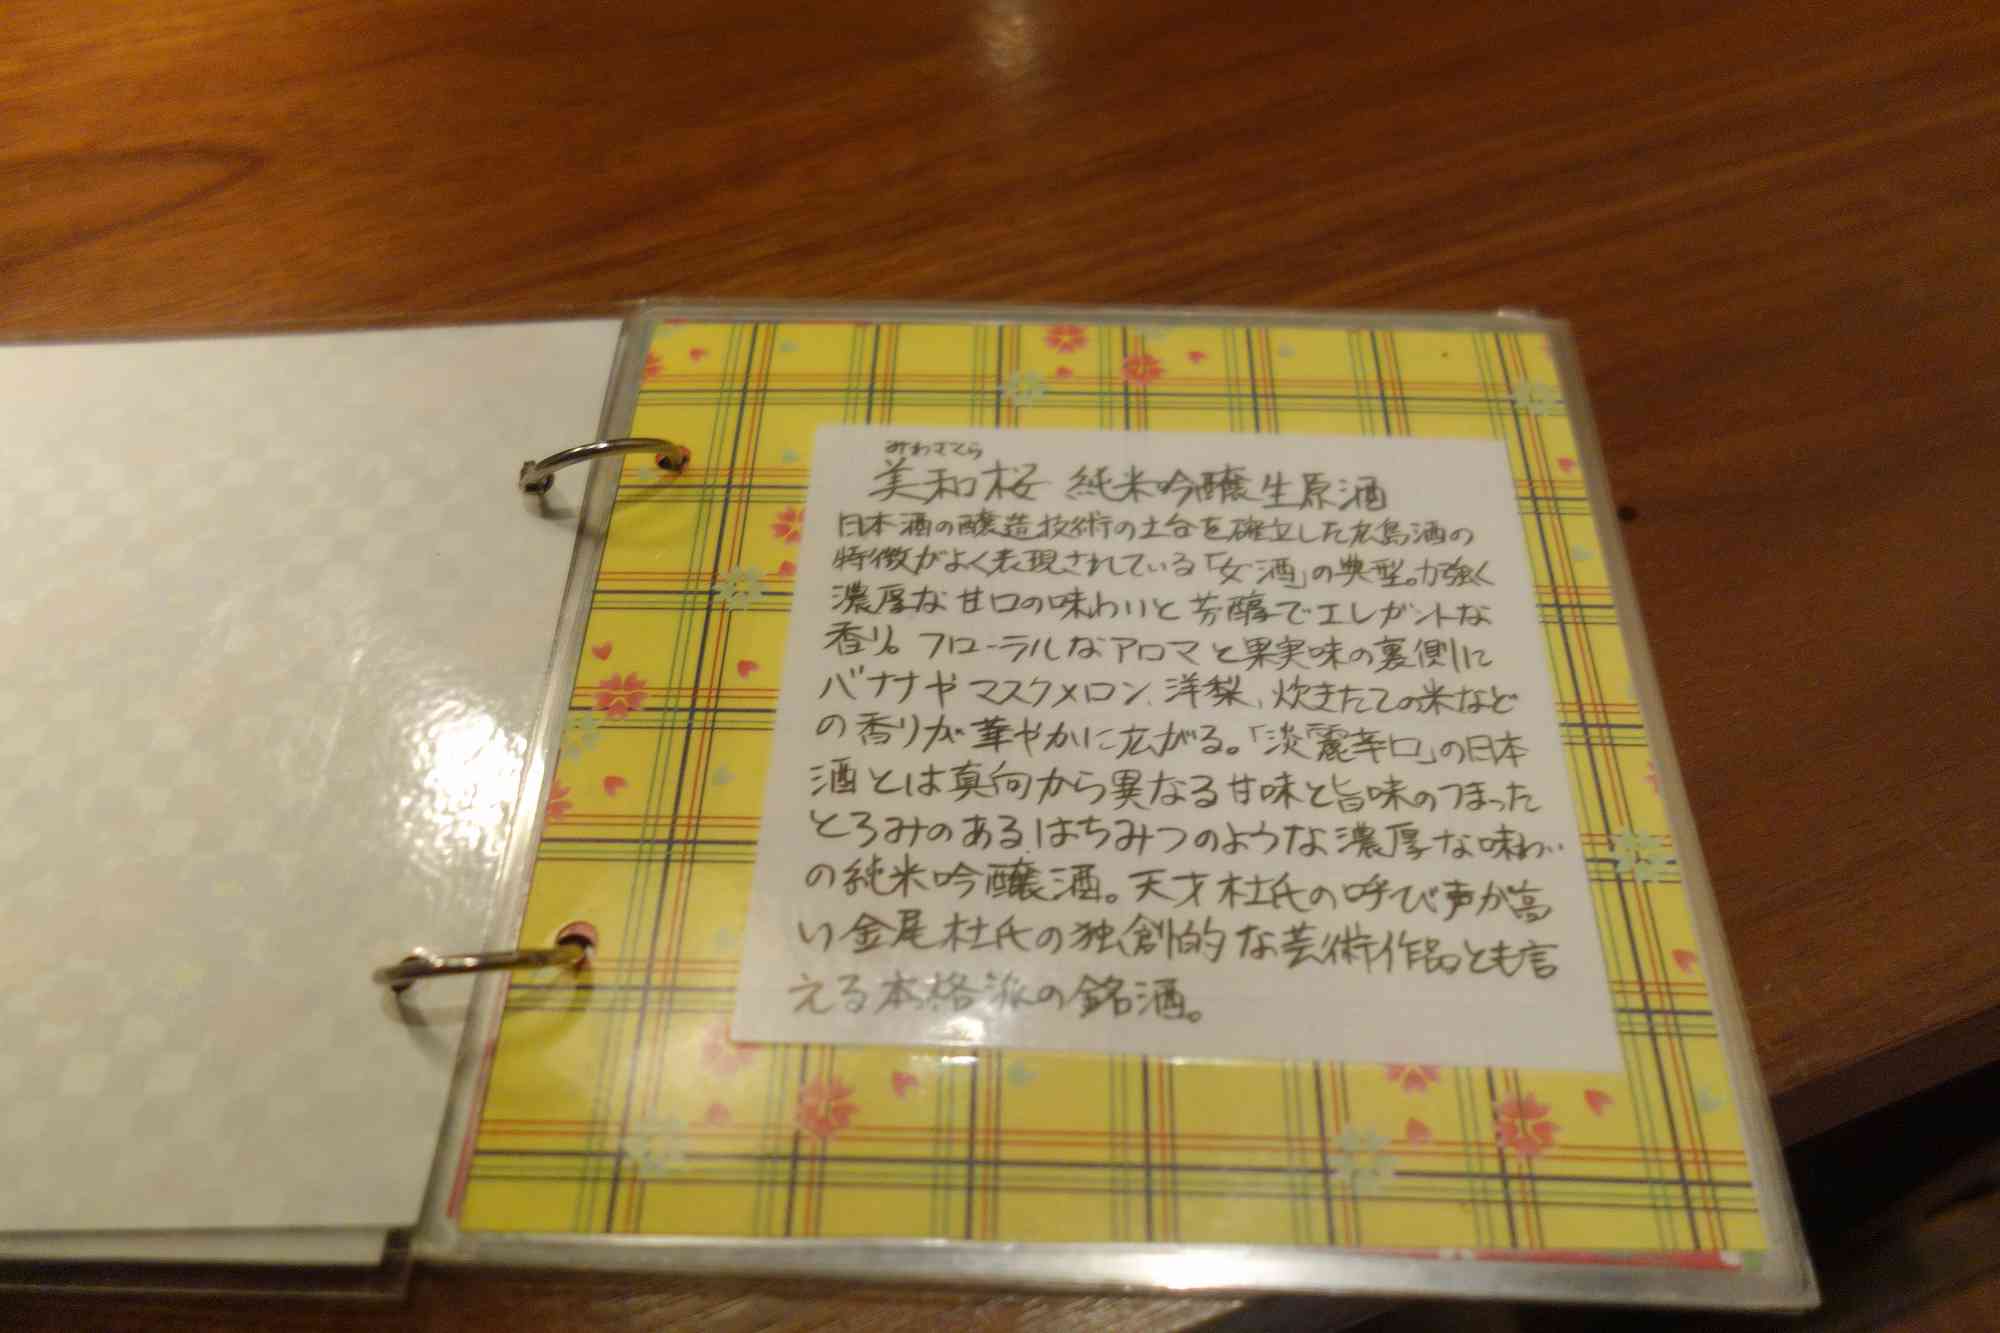 みわざくら
美和桜 純米吟醸生原酒
日本酒の醸造技術の土台を確立した広島酒の
特徴がよく表現されている「女酒」の典型。力強く
濃厚な甘口の味わいと芳醇でエレガントな
香り。フローラルなアロマと果実味の裏側に
バナナやマスクメロン、洋梨、炊きたての米など
の香りが華やかに広がる。「淡麗辛口」の日本
酒とは真向から異なる甘味と旨味のつまった
とろみのある、はちみつのような濃厚な味わい
の純米吟醸酒。天才杜氏の呼び声が高
い金尾杜氏の独創的な芸術作品とも言
える本格派の銘酒。